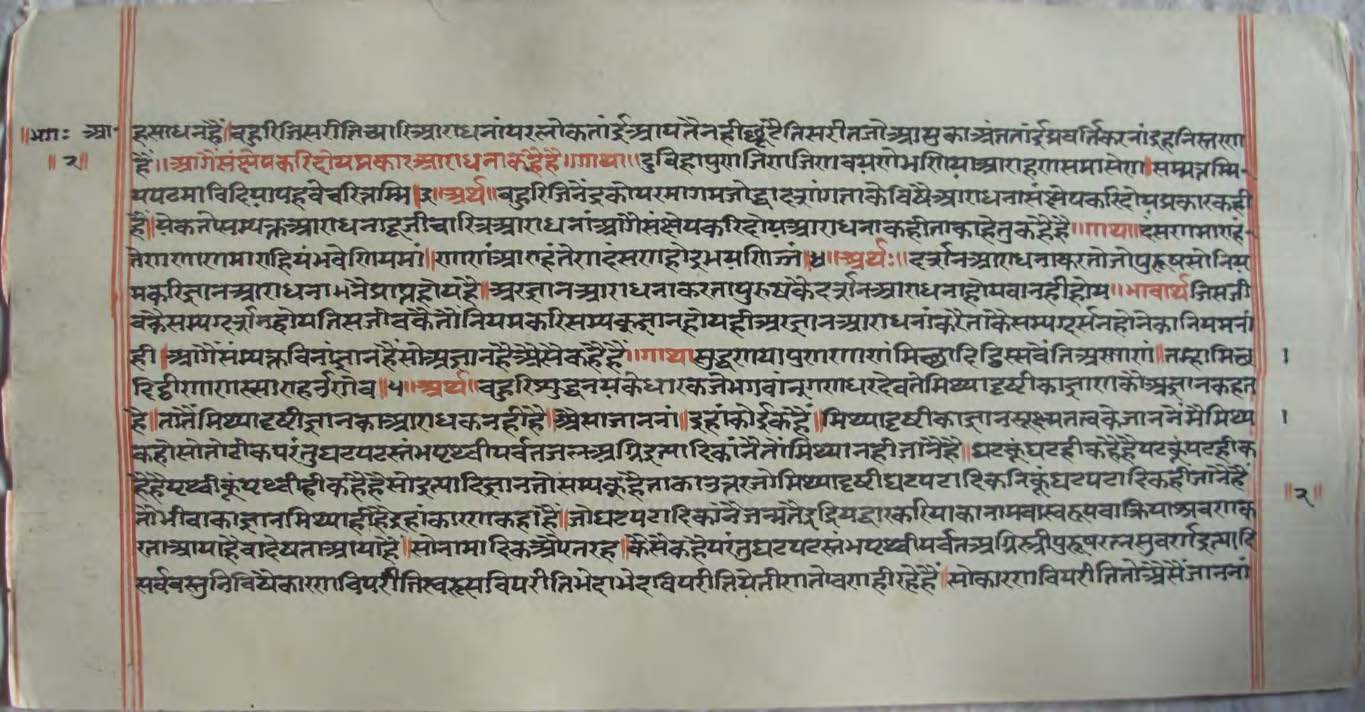 भगः आ॰ इसाधनहैं॥बहुरिजिसरीतिच्यारिआराधनांपरलोकतांईआयतैनहीछूटैतिसरीतजोआयुकाअंततांईप्रवर्तिकरनांइहनिस्तरणा
॥२॥ हैं॥आगैसंक्षेपकरिदोयप्रकारआराधनाकहैहै॥गाथा॥दुविहापुणजिणवयणेभणियाआराहणासमासेण॥सम्मत्तम्मि
यपढमाविदियायहवेचरित्तम्मि॥३॥अर्थ॥बहुरिजिनेंद्रकोपरमागमजोद्वादशांगताकेविषैआराधनासंक्षेपकरिदोयप्रकारकही
है॥येकतोसम्यक्तआराधनादूजीचारित्रआराधनांआगैसंक्षेपकरिदोयआराधनाकहीताकाहेतुकहैहै॥गाथा॥दंसणमाराहं
तेणणाणमाराहियंभवेणियमां॥णाणंआराहंतेणदंसणहोइभयणिज्जं॥४॥अर्थः॥दर्शनआराधनाकरतोजोपुरुषसोनिय
मकरिज्ञानआराधनाभनैप्राप्तहोयहै॥अरज्ञानआराधनाकरतापुरुषकैदर्शनआराधनाहोयवानहीहोय॥भावार्थजिसजी
वकैसम्यग्दर्शनहोयतिसजीवकैतौनियमकरिसम्यक्ज्ञानहोयहीअरज्ञानआराधनांकरैताकैसम्यग्दर्सनहोनेकानियमनां
ही॥आगैसंम्यक्तविनांज्ञानहैंसोअज्ञानहैअैसैकहैहैं॥गाथा॥सुद्धणयापुणणाणंमिच्छादिट्ठिस्सवेंतिअण्णाणं॥तम्हामिच्छ ।
दिट्ठीणाणस्साराहर्नणेव॥५॥अर्थ॥बहुरिशुद्धनयकेधारकजेभगवांन्गणधरदेवतेमिथ्यादृष्टीकाज्ञाणकौअज्ञानकहत
है॥तातैंमिथ्यादृष्टीज्ञानकाआराधकनहीहै॥अैसाजाननां॥इहांकोईकहैं॥मिथ्यादृष्टीकाज्ञानसूक्ष्मतत्वकेजाननेंमैमिथ्य ।
कहोसोतोठीकपरंतुघटपटस्तंभपृथ्वीपर्वतजलअग्निइत्यादिकांनैतौमिथ्यानहीजांनैहै॥घटकूंघटहीकहैहैपटकूंपटहीक
हैहैपृथ्वीकूंपृथ्वीहीकहैहैसोइत्यादिज्ञानतोसम्यक्कूंहैताकाउत्तरजोमिथ्यादृष्टीघटपटादिकनिकूंघटपटादिकहीजांनैहैं ॥२॥
तौभीवाकाज्ञानमिथ्याहीहैइहांकारणकहाहै॥जोघटपटादिकांनैजन्मतैइंद्रियद्वारकरियाकानामवास्वरूपवाक्रियाश्रवणक
रताआयाहैवादेषताआयाहै॥सोनामादिकअैरतरह॥कैसैकहैपरंतुघटपटस्तंभपृथ्वीपर्वतअग्निस्त्रीपुरूषरत्नसुवर्णइत्यादि
सर्ववस्तुनिविषैकारणविपरीतिस्वरूपविपरीतिभेदाभेदविपरीतियेतीणतोवणहीरहेहैं॥सोकारणविपरीतितोअैसैंजाननां